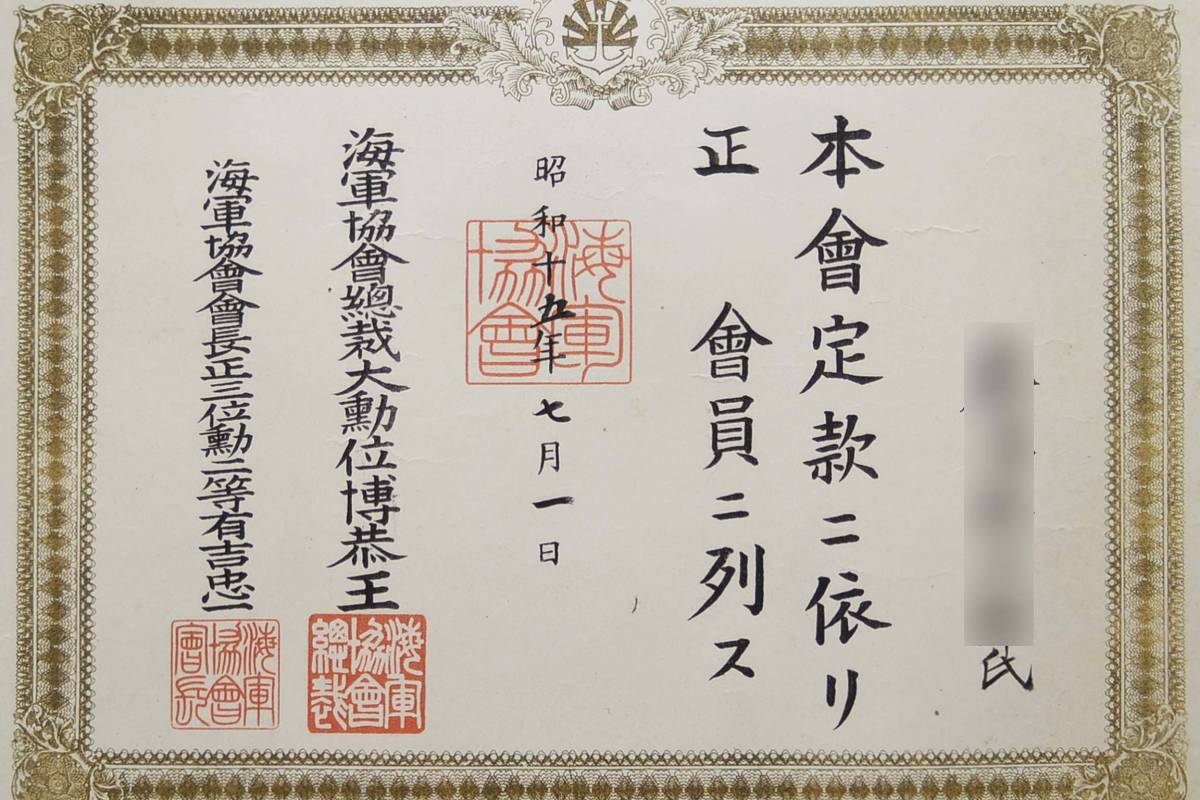 氏
本會定款ニ依リ
正　會員ニ列ス
昭和十五年七月一日
海軍協會
海軍協會總裁大勳位博恭王
海軍協會總裁
海軍協會會長正三位勳二等有吉忠一
海軍協會會長